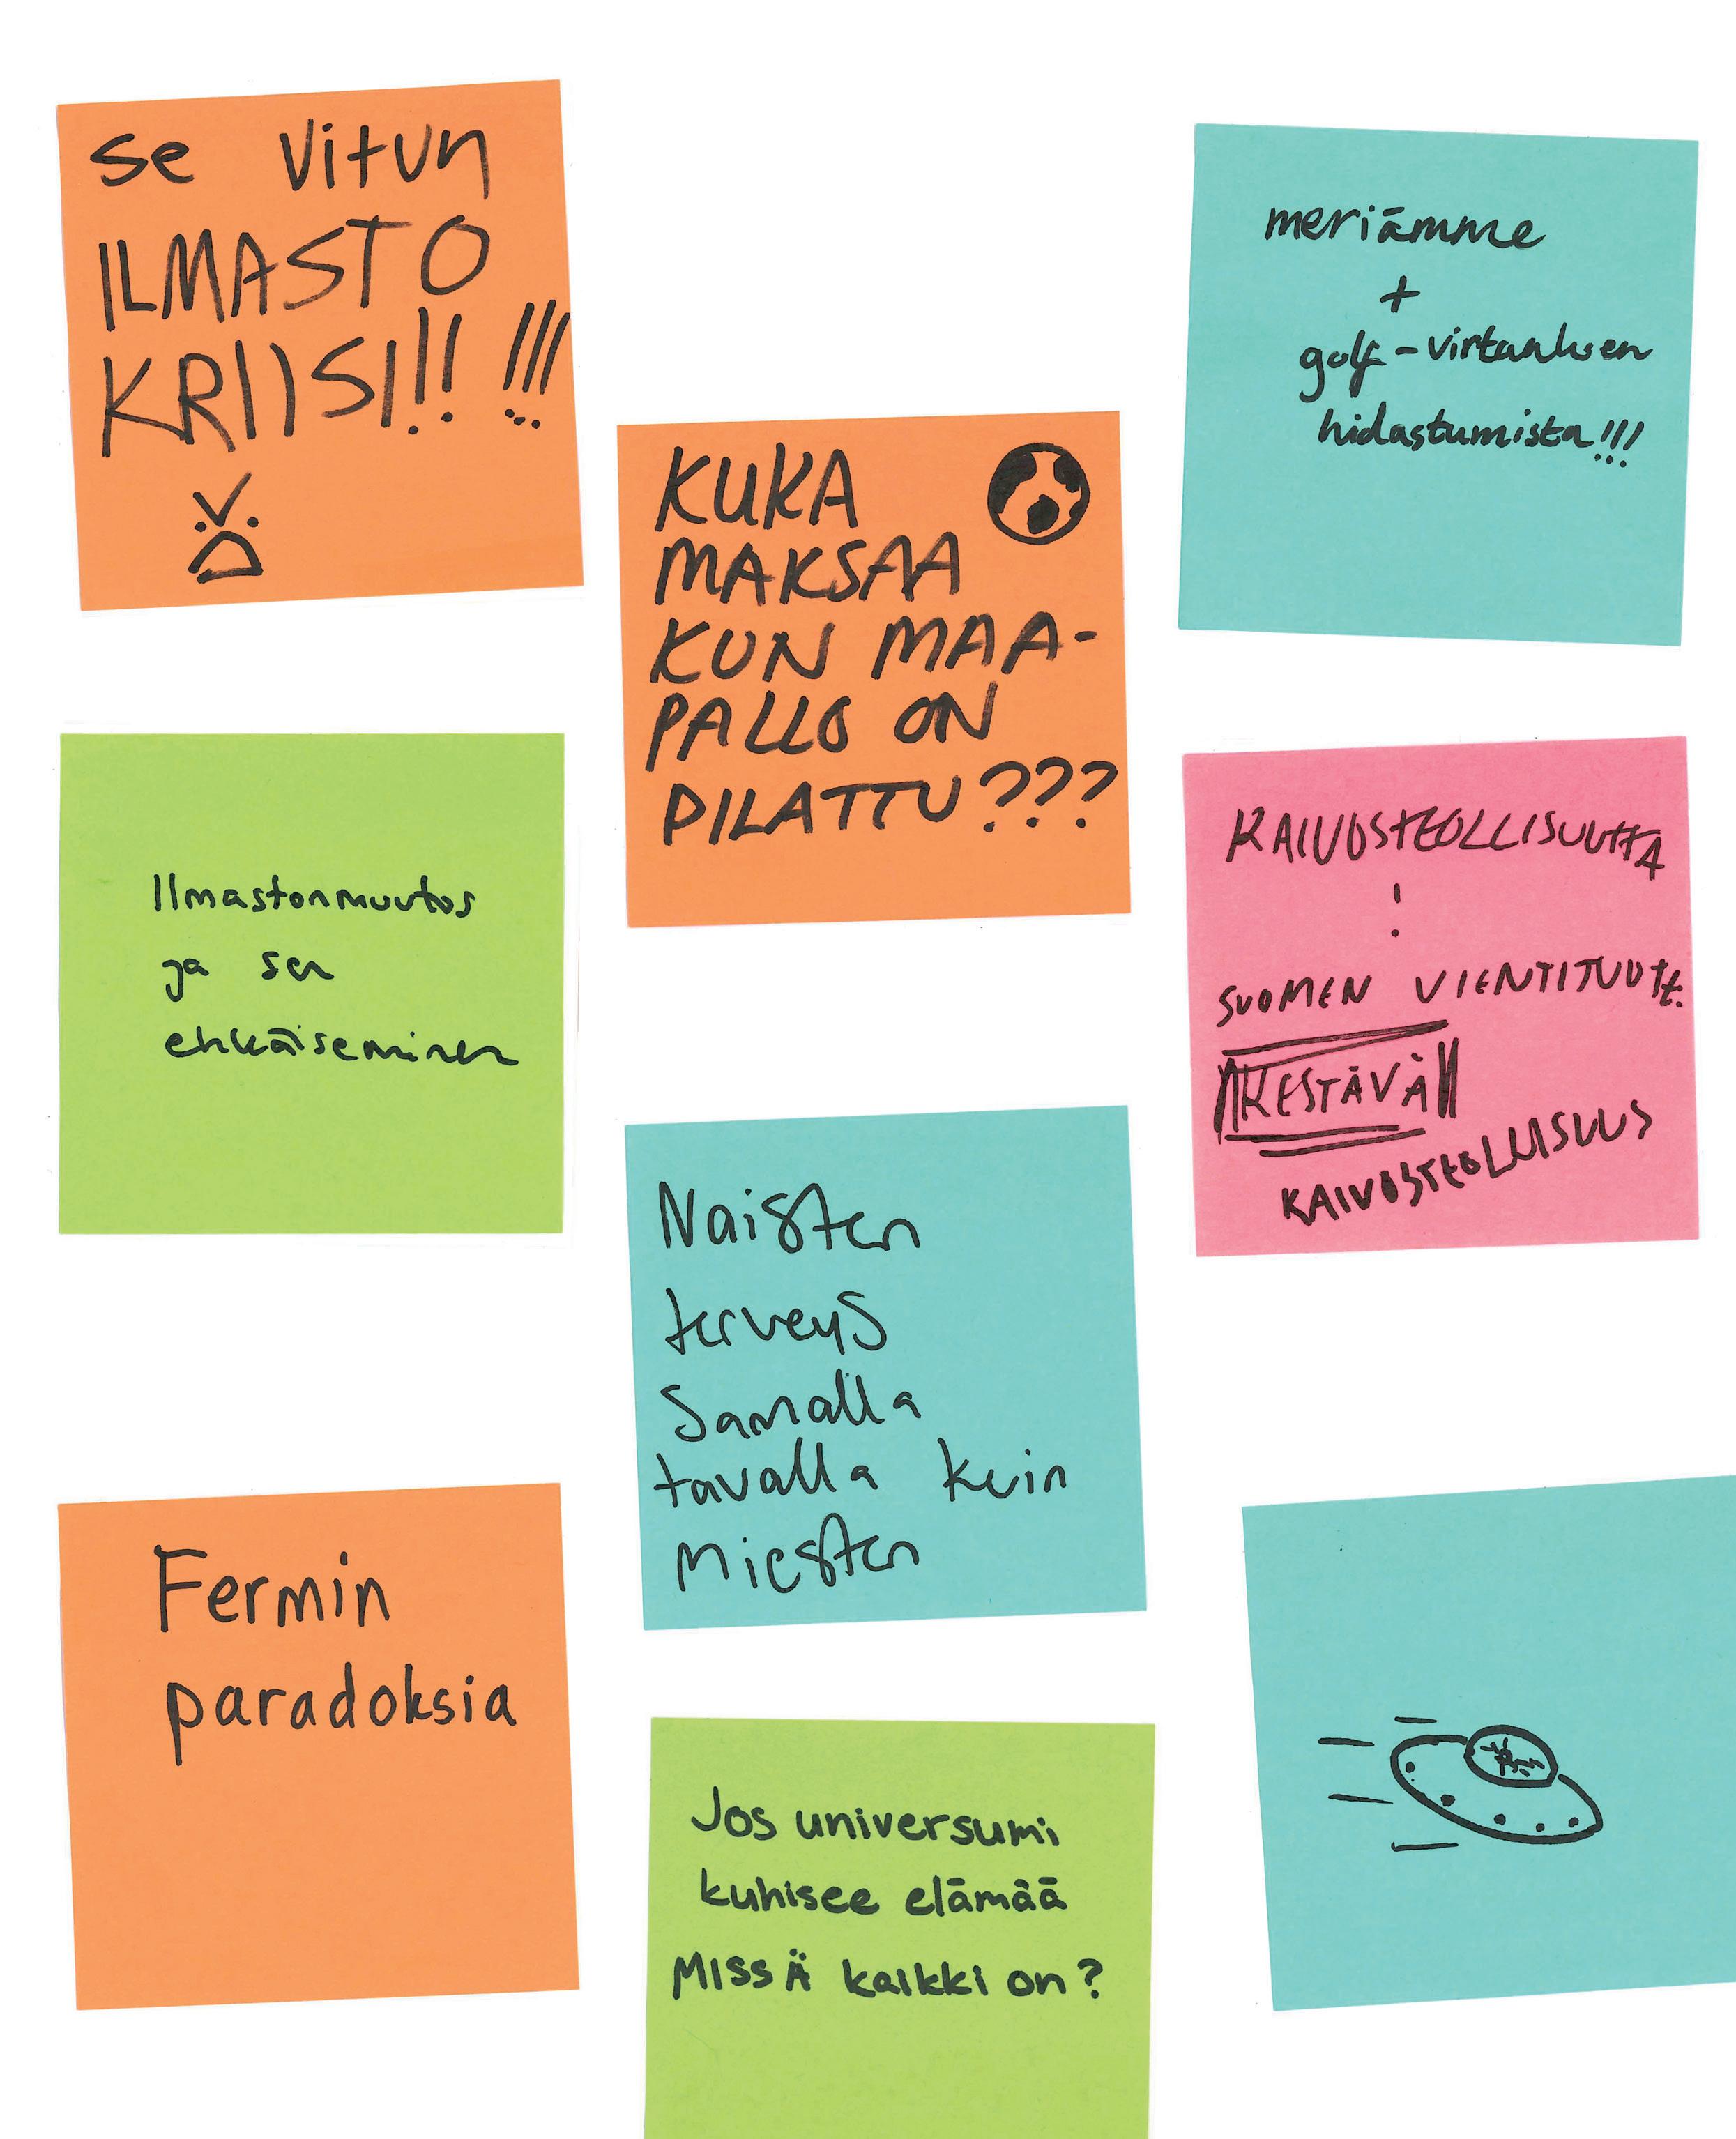 se vitun
ILMASTO
KRIISI!!! !!!
meriämme
+
golf-virtauksen
hidastumista!!!
KUKA
MAKSAA
KUN MAA-
PALLO ON
PILATTU???
Ilmastonmuutos
ja sen
ehkäiseminen
KAIVOSTEOLLISUUTTA
!
SUOMEN VIENTITUOTE:
KESTÄVÄ
KAIVOSTEOLLISUUS
Naisten
terveys
Samalla
tavalla kuin
Miesten
Fermin
paradoksia
Jos universumi
kuhisee elämää
MISSÄ kaikki on?